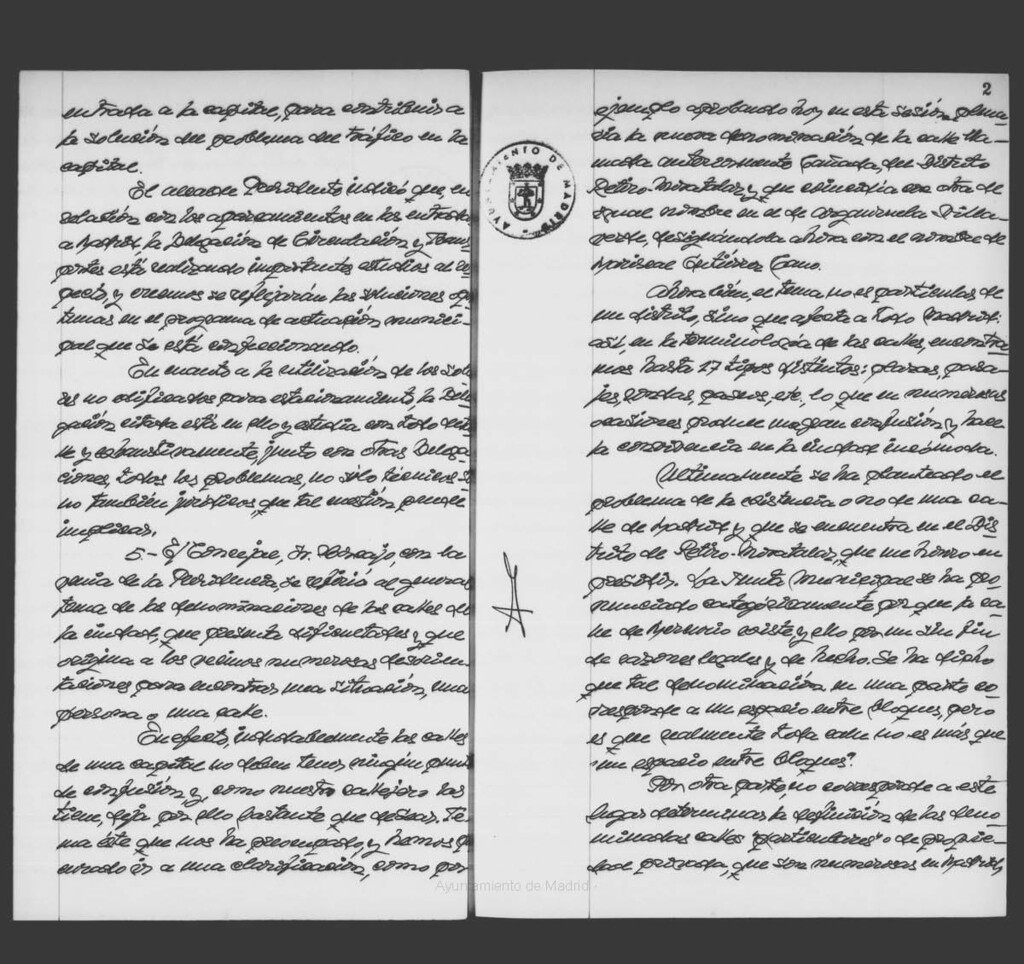 entrada a la capital, para contribuir a
la solución del problema del tráfico en la
capital.
El alcalde Presidente indicó que, en
relación con los aparcamientos en las entradas
a Madrid, la Delegación de Circulación y Trans
portes está realizando importantes estudios al res
pecto, y creemos se reflejarán las soluciones óp
timas en el programa de actuación munici-
pal que se está confeccionando.
En cuanto a la utilización de los sola
res no edificados para estacionamiento, la Dele
gación citada está en ello y estudia con todo deta
lle y exhaustivamente, junto con otras Delega-
ciones, todos los problemas, no sólo técnicos si
no también jurídicos, que tal cuestión puede
implicar.
5.- El Concejal, Sr. con la
venia de la Presidencia, se refirió al general
tema de las denominaciones de las calles de
la ciudad, que presenta dificultades y que
origina a los vecinos numerosas desorien-
taciones para encontrar una situación, una
persona o una calle.
En efecto, indudablemente las calles
de una capital no deben tener ningún punto
de confusión y, como nuestro callejero las
tiene, deja por ello bastante que desear. Te
ma éste que nos ha preocupado, y hemos pro
curado ir a una clarificación, como por
2
ejemplo aprobando hoy en esta sesión plena
ria la nueva denominación de la calle lla-
mada anteriormente Cañada, del Distrito
Retiro-Moratalaz, y que coincidía con otra de
igual nombre en el de Arganzuela-Villa-
verde, designándola ahora con el nombre de
Mariscal Gutiérrez Cano.
Ahora bien, el tema no es particular de
un distrito, sino que afecta a todo Madrid:
así, en la terminología de las calles, encontra
mos hasta 27 tipos distintos: plazas, pasa-
jes, rondas, paseos, etc. lo que en numerosas
ocasiones produce magna confusión y hace
la convivencia en la ciudad incómoda.
Ultimamente se ha planteado el
problema de la existencia o no de una ca-
lle de Madrid y que se encuentra en el Dis
trito de Retiro-Moratalaz, que me honro en
presidir. La Junta Municipal se ha pro
nunciado categóricamente por que la ca
lle de Mercurio existe y ello por un sin fin
de razones legales y de hecho. Se ha dicho
que tal denominación en una parte co-
rresponde a un espacio entre bloques, pero
es que realmente toda calle no es más que
"un espacio entre bloques".
Por otra parte, no corresponde a este
lugar determinar la definición de las deno
minadas calles "particulares" o de propie-
dad privada, que son numerosas en Madrid,
AYUNTAMIENTO DE MADRID
Ayuntamiento de Madrid